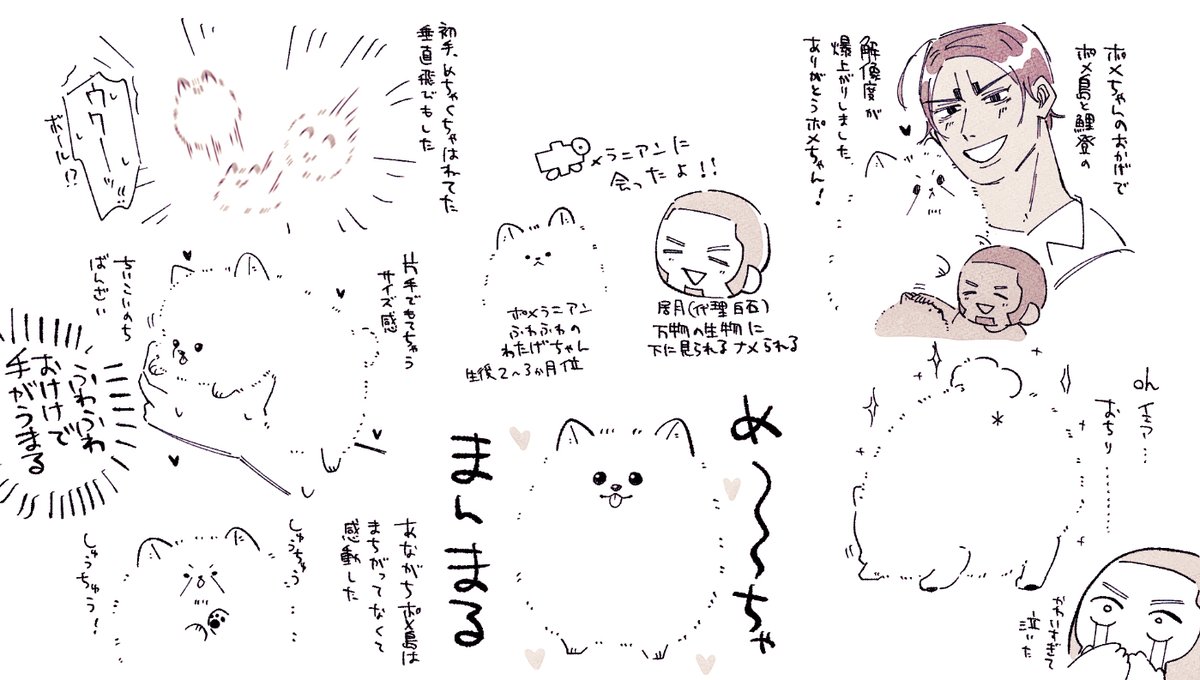 ポメちゃんのおかげで
ポメ島と鯉登の
解像度が
爆上がりしました
ありがとうポメちゃん!
メラニアンに
会ったよ!!
ポメラニアン
ふわふわの
わたげちゃん
生後2〜3か月位
居月(代理白石)
万物の生物に
下に見られるナメられる
初手、めちゃくちゃはねてた
垂直飛びもした
ウワーッ
ボール!?
片手でもてちゃう
サイズ感
ちいこいのち
ばんざい
ふわふわ
おけけで
手がうまる
め〜〜ちゃ
まんまる
oh
おちり………
かわいすぎて
泣いた
あながちポメ島は
まちがってなくて
感動した
しゅうちゅう
しゅうちゅう!